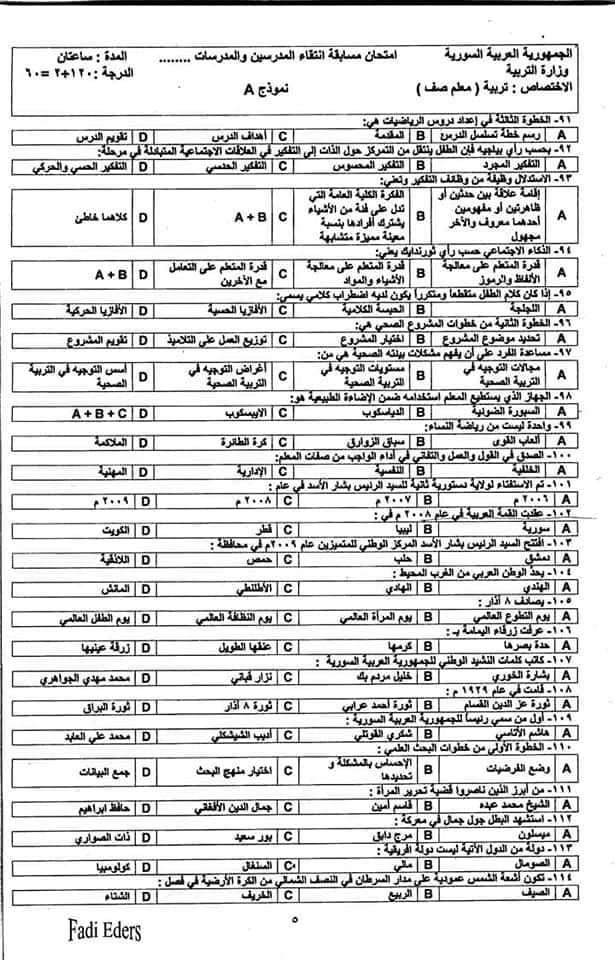 الجمهورية العربية السورية
وزارة التربية
الاختصاص : تربية ( معلم صف )
امتحان مسابقة انتقاء المدرسين والمدرسات ........
نموذج A
المدة : ساعتان
الدرجة : ١٢٠÷٢ = ٦٠
٩١- الخطوة الثالثة في إعداد دروس الرياضيات هي:
A رسم خطة تسلسل الدرس B المقدمة C أهداف الدرس D تقويم الدرس
٩٢- بحسب رأي بياجيه فإن الطفل ينتقل من التمركز حول الذات إلى التفكير في العلاقات الاجتماعية المتبادلة في مرحلة:
A التفكير المجرد B التفكير المحسوس C التفكير الحدسي D التفكير الحسي والحركي
٩٣- الاستدلال وظيفة من وظائف التفكير وتعني:
A إقامة علاقة بين حدثين أو ظاهرتين أو مفهومين أحدهما معروف والآخر مجهول B الفكرة الكلية العامة التي تدل على فئة من الأشياء يشترك أفرادها بنسبة معينة مميزة متشابهة C A + B D كلاهما خاطئ
٩٤- الذكاء الاجتماعي حسب رأي ثورندايك يعني:
A قدرة المتعلم على معالجة الألفاظ والرموز B قدرة المتعلم على معالجة الأشياء والمواد C قدرة المتعلم على التعامل مع الآخرين D A + B
٩٥- إذا كان كلام الطفل متقطعاً ومتكرراً يكون لديه اضطراب كلامي يسمى:
A اللجلجة B الحبسة الكلامية C الأفازيا الحسية D الأفازيا الحركية
٩٦- الخطوة الثانية من خطوات المشروع الصحي هي:
A تحديد موضوع المشروع B اختيار المشروع C توزيع العمل على التلاميذ D تقويم المشروع
٩٧- مساعدة الفرد على أن يفهم مشكلات بيئته الصحية هي من:
A مجالات التوجيه في التربية الصحية B مستويات التوجيه في التربية الصحية C أغراض التوجيه في التربية الصحية D أسس التوجيه في التربية الصحية
٩٨- الجهاز الذي يستطيع المعلم استخدامه ضمن الإضاءة الطبيعية هو:
A السبورة الضوئية B الدياسكوب C الايبسكوب D A + B + C
٩٩- واحدة ليست من رياضة النساء:
A ألعاب القوى B سباق الزوارق C كرة الطائرة D الملاكمة
١٠٠- الصدق في القول والعمل والتفاني في أداء الواجب من صفات المعلم:
A الخلقية B النفسية C الإدارية D المهنية
١٠١- تم الاستفتاء لولاية دستورية ثانية للسيد الرئيس بشار الأسد في عام :
A ٢٠٠٦ م B ٢٠٠٧ م C ٢٠٠٨ م D ٢٠٠٩ م
١٠٢- عقدت القمة العربية في عام ٢٠٠٨ م في :
A سورية B ليبيا C قطر D الكويت
١٠٣- افتتح السيد الرئيس بشار الأسد المركز الوطني للمتميزين عام ٢٠٠٩م في محافظة :
A دمشق B حلب C حمص D اللاذقية
١٠٤- يحدّ الوطن العربي من الغرب المحيط :
A الهندي B الهادي C الأطلنطي D المانش
١٠٥- يصادف ٨ آذار :
A يوم التطوع العالمي B يوم المرأة العالمي C يوم النظافة العالمي D يوم الطفل العالمي
١٠٦- عرفت زرقاء اليمامة بـ :
A حدة بصرها B كرمها C عنقها الطويل D زرقة عينيها
١٠٧- كاتب كلمات النشيد الوطني للجمهورية العربية السورية :
A بشارة الخوري B خليل مردم بك C نزار قباني D محمد مهدي الجواهري
١٠٨- قامت في عام ١٩٢٩ م :
A ثورة عز الدين القسام B ثورة أحمد عرابي C ثورة ٨ آذار D ثورة البراق
١٠٩- أول من سمي رئيساً للجمهورية العربية السورية :
A هاشم الأتاسي B شكري القوتلي C أديب الشيشكلي D محمد علي العابد
١١٠- الخطوة الأولى من خطوات البحث العلمي :
A وضع الفرضيات B الإحساس بالمشكلة و تحديدها C اختيار منهج البحث D جمع البيانات
١١١- من أبرز الذين ناصروا قضية تحرير المرأة :
A الشيخ محمد عبده B قاسم أمين C جمال الدين الأفغاني D حافظ ابراهيم
١١٢- استشهد البطل جول جمال في معركة :
A ميسلون B مرج دابق C بور سعيد D ذات الصواري
١١٣- دولة من الدول الآتية ليست دولة افريقية :
A الصومال B مالي C السنغال D كولومبيا
١١٤- تكون أشعة الشمس عمودية على مدار السرطان في النصف الشمالي من الكرة الأرضية في فصل :
A الصيف B الربيع C الخريف D الشتاء
٥
Fadi Eders